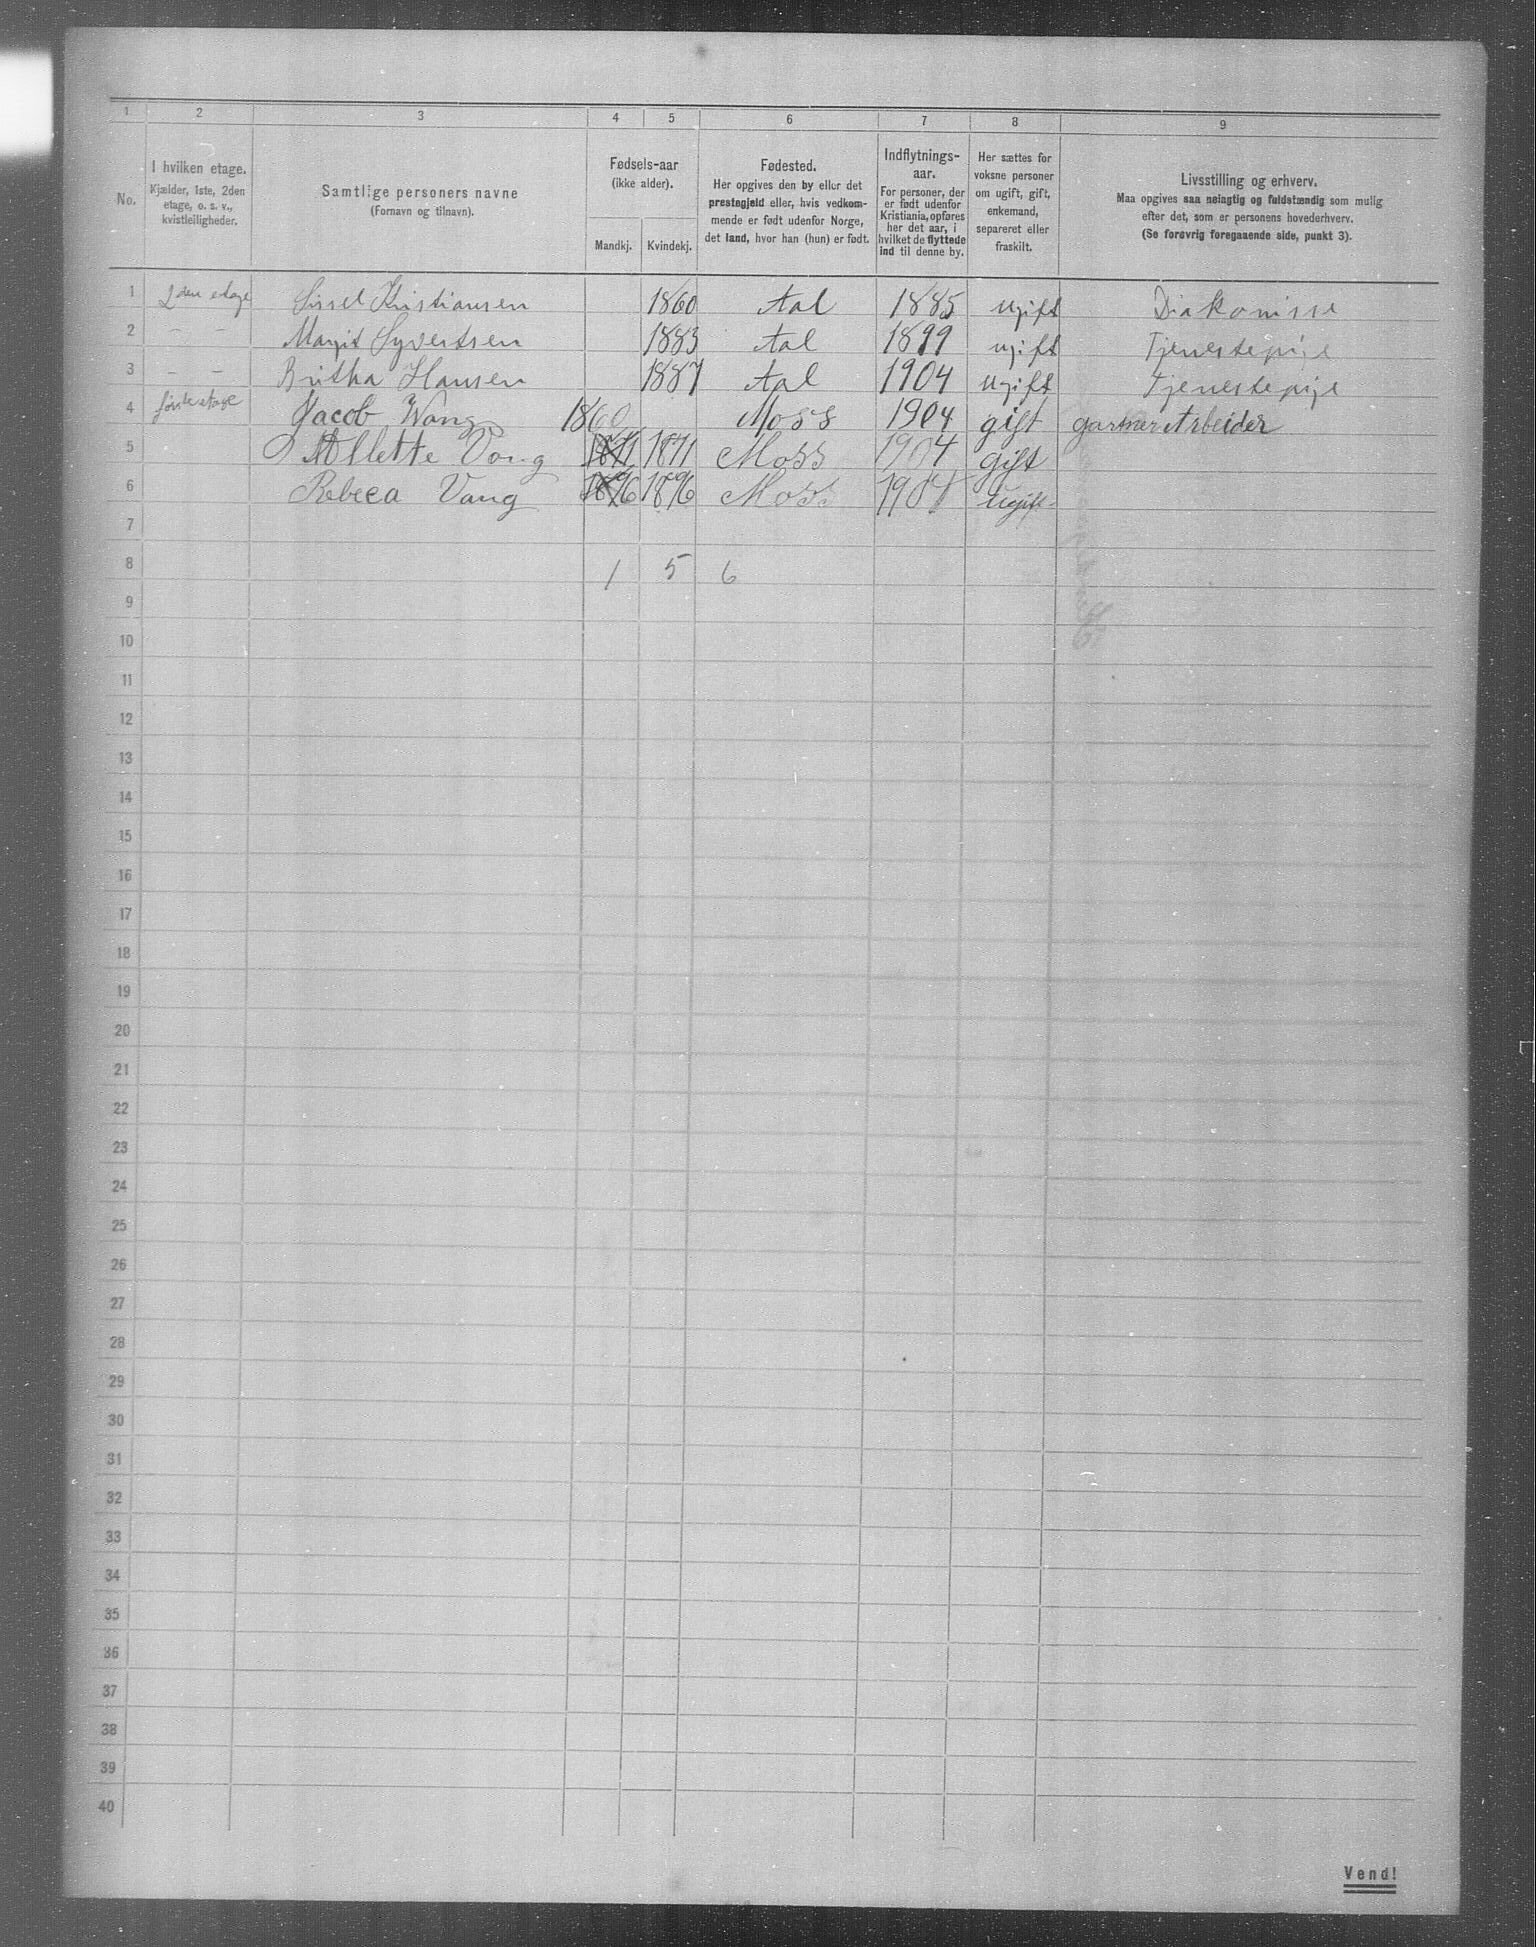 1 2 3 4 5 6 7 8 9
No.
I hvilken etage.
Kjælder, 1ste, 2den
etage, o. s. v.,
kvistleiligheder.
Samtlige personers navne
(Fornavn og tilnavn).
Fødsels-aar
(ikke alder).
Mandkj. Kvindekj.
Fødested.
Her opgives den by eller det
prestegjeld eller, hvis vedkom-
mende er født udenfor Norge,
det land, hvor han (hun) er født.
Indflytnings-
aar.
For personer, der
er født udenfor
Kristiania, opføres
her det aar, i
hvilket de flyttede
ind til denne by.
Her sættes for
voksne personer
om ugift, gift,
enkemand,
separeret eller
fraskilt.
Livsstilling og erhverv.
Maa opgives saa nøiagtig og fuldstændig som mulig
efter det, som er personens hovederhverv.
(Se forøvrig foregaaende side, punkt 3).
1 2den etage Sissel Kristiansen 1860 Aal 1885 ugift Diakonisse
2 - - Margit Syvertsen 1883 Aal 1899 ugift Tjenestepije
3 - - Britha Hansen 1887 Aal 1904 ugift Tjenestepije
4 førsteetage Jacob Wang 1860 Moss 1904 gift gartnerArbeider
5 Vang 1871 1871 Moss 1904 gift
6 Rebeca Vang 1896 1896 Moss 1904 ugift
7
8 1 5 6
9
10
11
12
13
14
15
16
17
18
19
20
21
22
23
24
25
26
27
28
29
30
31
32
33
34
35
36
37
38
39
40
Vend!